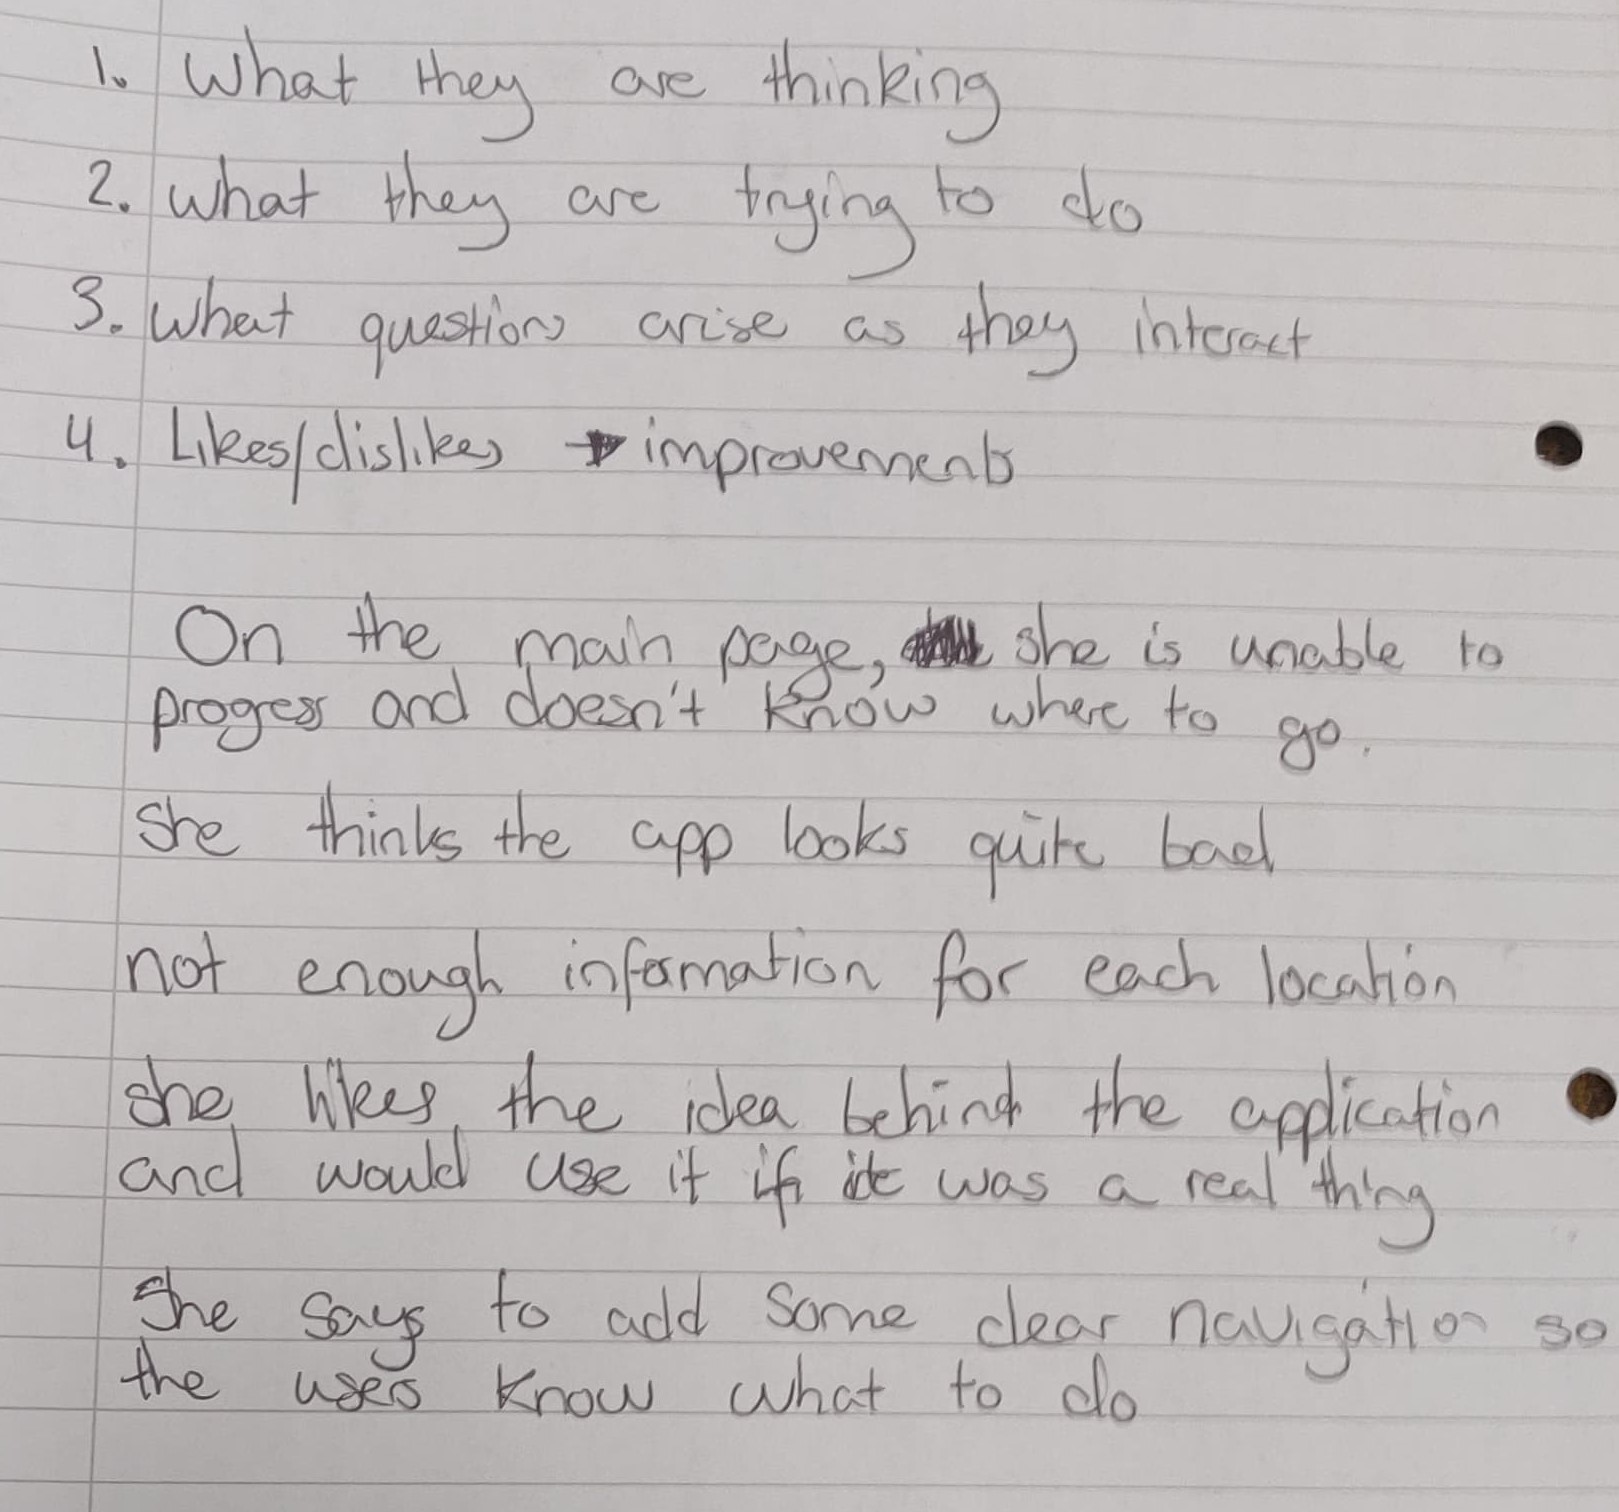 1. What they are thinking
2. What they are trying to do
3. What questions arise as they interact
4. Likes/dislikes → improvements
On the main page, she is unable to
progress and doesn't know where to go.
She thinks the app looks quite bad
not enough information for each location
she likes the idea behind the application
and would use it if it was a real thing
She says to add some clear navigation so
the users know what to do